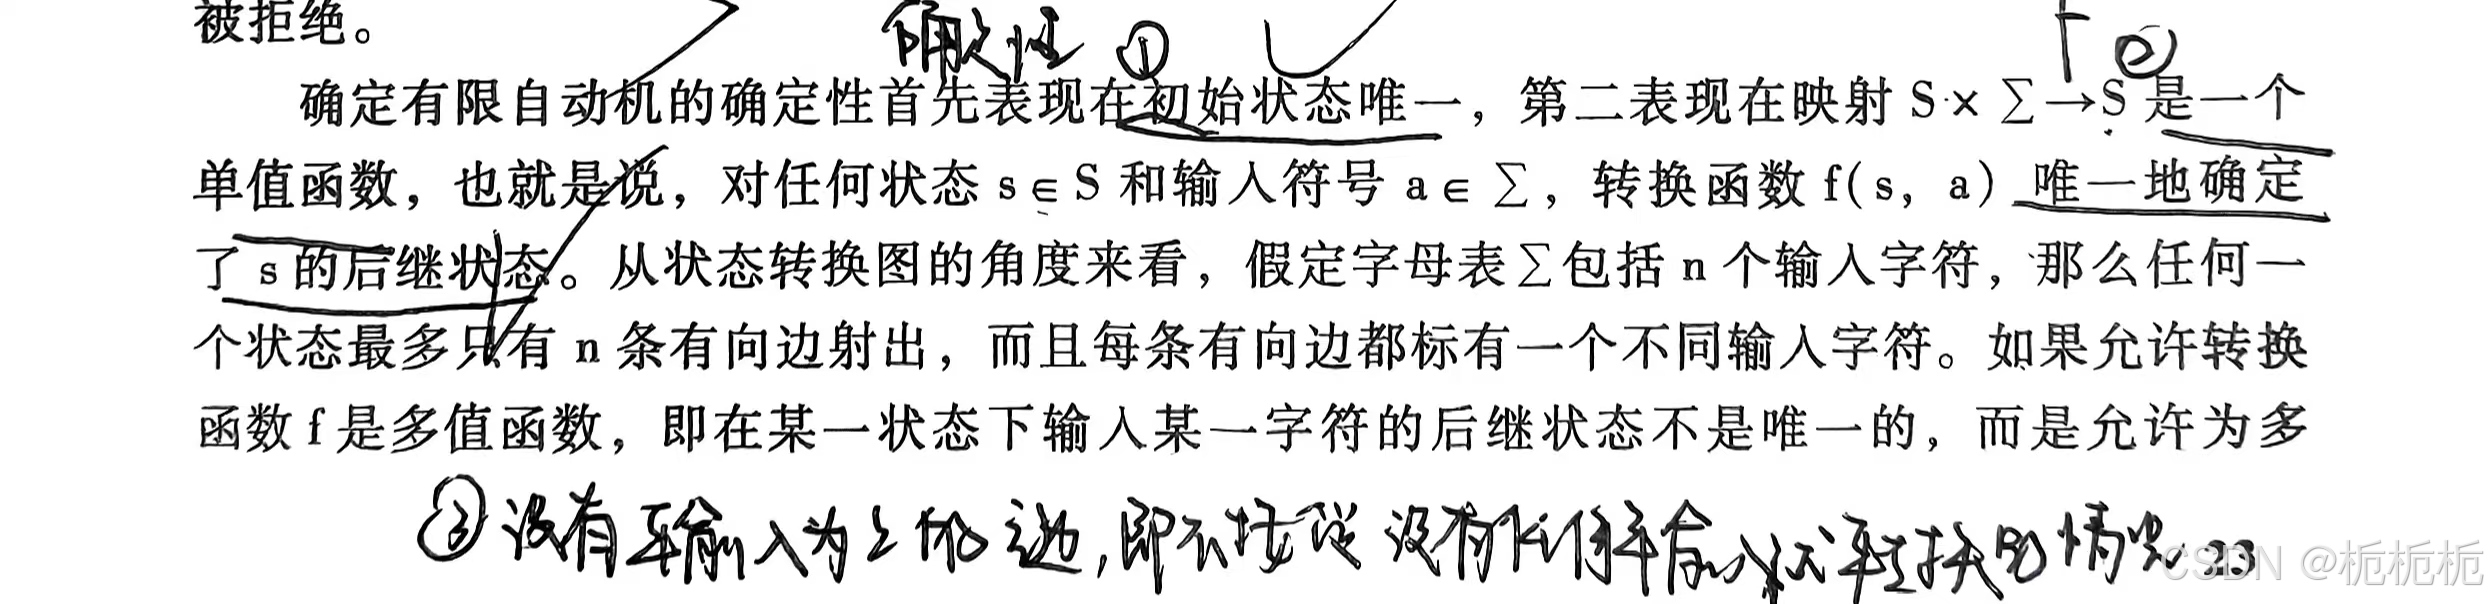 被拒绝。
确定性 ① ②
确定有限自动机的确定性首先表现在初始状态唯一，第二表现在映射 S×∑→S 是一个
单值函数，也就是说，对任何状态 s∈S 和输入符号 a∈∑，转换函数 f(s，a) 唯一地确定
了 s 的后继状态。从状态转换图的角度来看，假定字母表∑包括 n 个输入字符，那么任何一
个状态最多只有 n 条有向边射出，而且每条有向边都标有一个不同输入字符。如果允许转换
函数 f 是多值函数，即在某一状态下输入某一字符的后继状态不是唯一的，而是允许为多
③没有输入为ε的边，即不接受没有任何输入就转换的情况
CSDN @栀栀栀